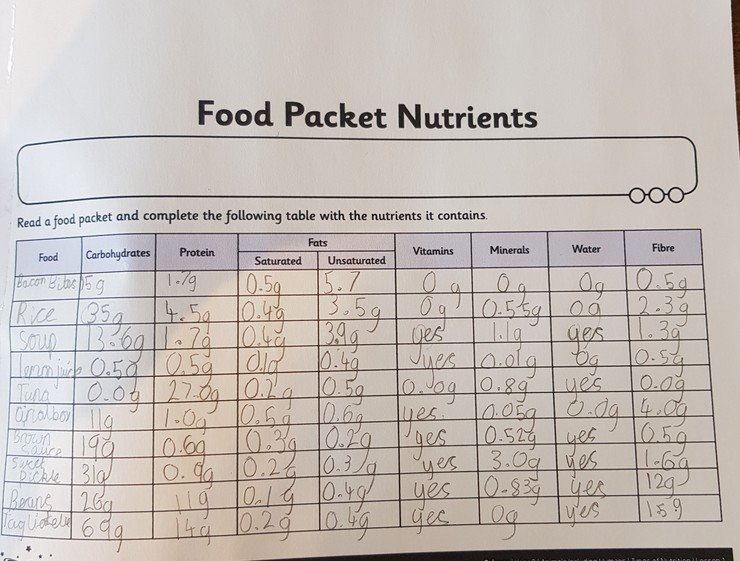 Food Packet Nutrients
Read a food packet and complete the following table with the nutrients it contains.
Food Carbohydrates Protein Fats Saturated Unsaturated Vitamins Minerals Water Fibre
Bacon Bites 15g 1.7g 0.5g 5.7 0g 0g 0g 0.5g
Rice 35g 4.5g 0.4g 3.5g 0g 0.55g 0g 2.3g
Soup 13.6g 1.7g 0.4g yes 1.1g yes 1.3g
lemon juice 0.5g 0.5g 0.4g yes 0.01g 0g 0.5g
Tuna 0.0g 27.0g 0.2g 0.5g 0.0g 0.8g yes 0.0g
11g 1.0g 0.5g 0.6g yes. 0.05g 0.0g 4.0g
Brown Sauce 19g 0.6g 0.3g 0.2g yes 0.52g yes 0.5g
Sweet Pickle 31g 0.9g 0.2g 0.3g yes 3.0g yes 1.6g
Beans 26g 11g 0.1g 0.4g yes 0.83g yes 12g
Tagliatelle 69g 14g 0.2g 0.4g yes 0g yes